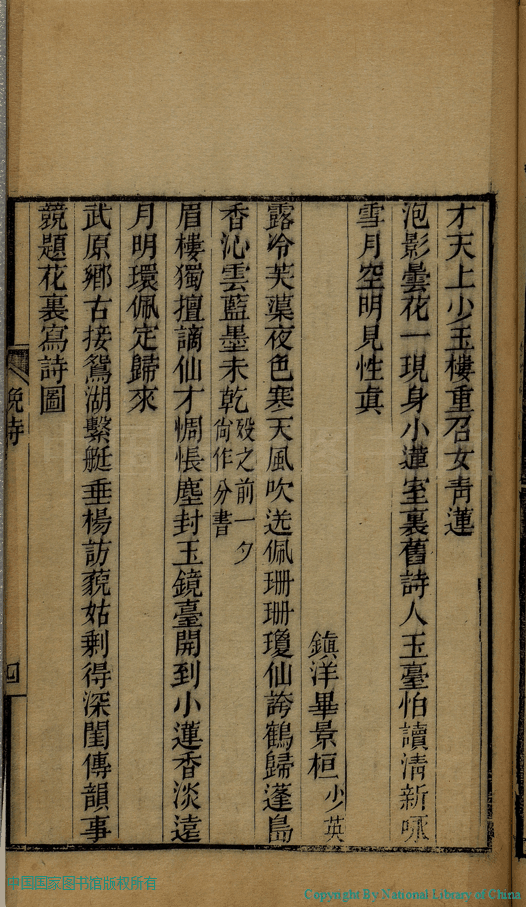 才天上少玉樓重召女青蓮
泡影曇花一現身小蓮室裏舊詩人玉臺怕讀清新咏
雪月空明見性眞
鎮洋畢景桓少英
露冷芙蕖夜色寒天風吹送佩珊珊瓊仙誇鶴歸蓬島
香沁雲藍墨未乾歿之前一夕尙作分書
眉樓獨擅謫仙才惆悵塵封玉鏡臺開到小蓮香淡遠
月明環佩定歸來
武原鄉古接鴛湖繫艇垂楊訪藐姑剩得深閨傳韻事
競題花裏寫詩圖
挽詩
四
中国国家图书馆版权所有
Copyright By National Library of China